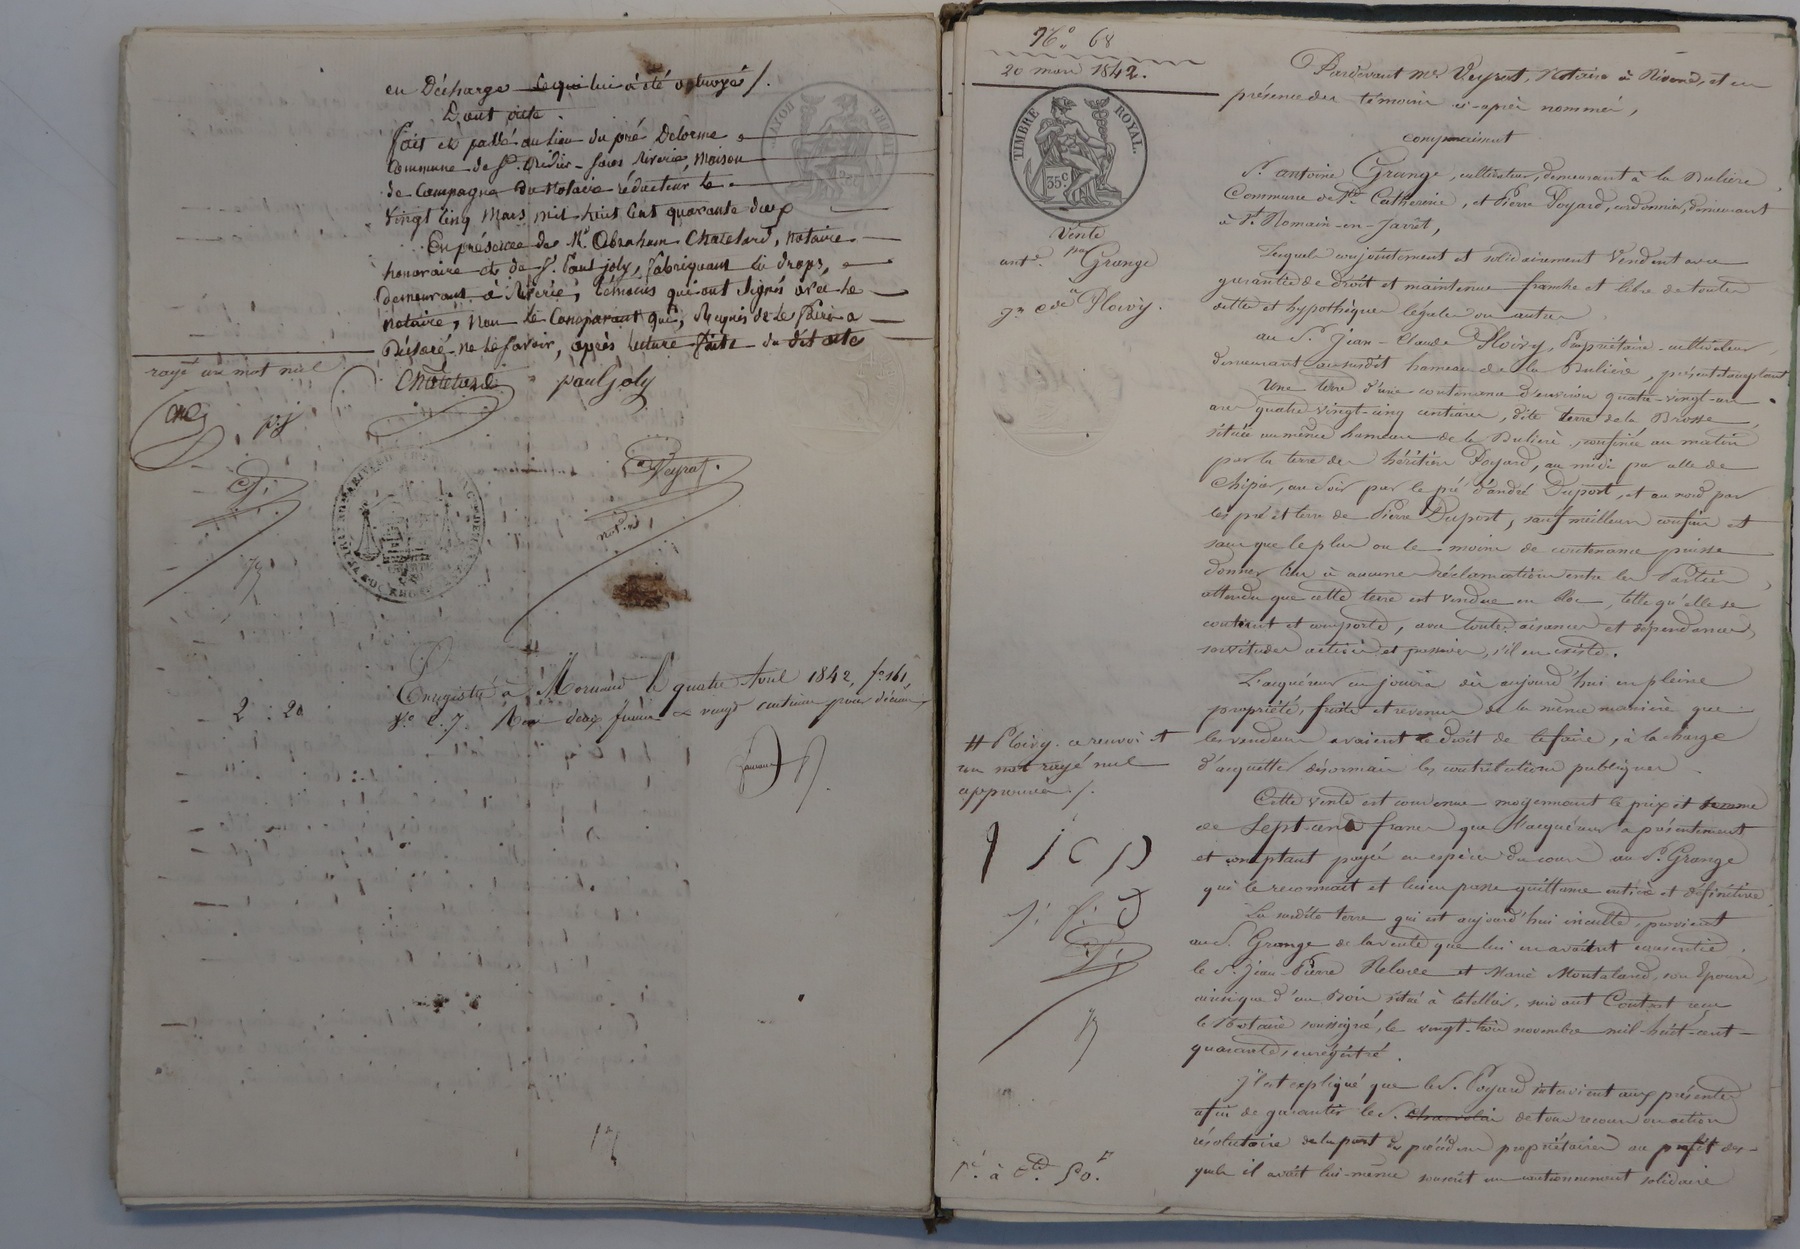 en Décharge ce qui lui a été octroyé /.
Dont acte
fait et passé au lieu du pré Delorme
Commune de St. Didier-sous Riverie, Maison
de Campagne du Notaire rédacteur le
Vingt Cinq Mars mil huit Cent quarante deux
En présence de Mr Abraham Chatelard, notaire
honoraire et de Sr. Paul joly, fabriquant de draps,
demeurans à Riverie, témoins qui ont signés avec le
notaire, non le Comparant qui, Requis de le faire a
Déclaré ne le savoir, après lecture faite du dit acte
rayé un mot nul
Chatelard paul joly
p.j
Veyrat.
not.re
Enregistré à Mornand le quatre Avril 1842, fo. 161,
Vo. C. 7. Reçu deux francs vingt centimes pour décime
2 : 20
No. 68
20 mars 1842.
TIMBRE ROYAL.
35 c
Vente
par
antne. Grange
à
Jn Cde Ploivy.
Pardevant Me Veyrat, Notaire à Riverie, et en
présence des témoins ci-après nommés,
comparaissent
Sr. antoine Grange, cultivateur, demeurant à la Bulière
Commune de Ste Catherine, et Pierre Poyard, cordonnier, demeurant
à St. Romain-en-Jarrêt,
Lesquels conjointement et solidairement Vendent avec
garantie de droit et maintenue franche et libre de toute
dette et hypothèque légale ou autre
au Sr. Jean-Claude Ploivy, Propriétaire-cultivateur,
demeurant au susdit hameau de la Bulière, présent et acceptant
Une terre d'une contenance d'environ quatre-vingt-un
ares quatre vingt-cinq centiares, dite terre de la Brosse,
située au même hameau de la Bulière, confinée au matin
par la terre des héritiers Poyard, au midi par celle de
Chipier, au soir par le pré d'andré Duport, et au nord par
les pré et terre de Pierre Duport, sauf meilleurs confins et
sans que le plus ou le moins de contenance puisse
donner lieu à aucune réclamation entre les Parties,
attendu que cette terre est vendue en bloc, telle qu'elle se
contient et comporte, avec toutes aisances et dépendances,
servitudes actives et passives, s'il en existe.
L'acquéreur en jouira dès aujourd'hui en pleine
propriété, fruits et revenus de la même manière que
les vendeurs avaient le droit de le faire, à la charge
d'acquitter désormais les contributions publiques.
Cette vente est convenue moyennant le prix et somme
de Sept-cens francs que l'acquéreur a présentement
et comptant payés en espèces du cours au Sr. Grange
qui le reconnaît et lui en passe quittance entière et définitive.
La susdite terre qui est aujourd'hui inculte, provient
au Sr. Grange de la vente que lui en avaient consentie
le Sr. Jean-Pierre Relave et Marie Montaland, son Epouse,
ainsi que d'un Bois situé à letellier, suivant Contrat reçu
le Notaire soussigné, le vingt-trois novembre mil-huit-cent-
quarante, enregistré.
Il est expliqué que le Sr. Poyard intervient aux présentes
afin de garantir le Sr. de tous recours ou action
résolutoire de la part des précédens propriétaires au profit des-
quels il avait lui-même souscrit un cautionnement solidaire
# Ploivy. ce renvoi et
un mot rayé nul
approuvés /.
J C P